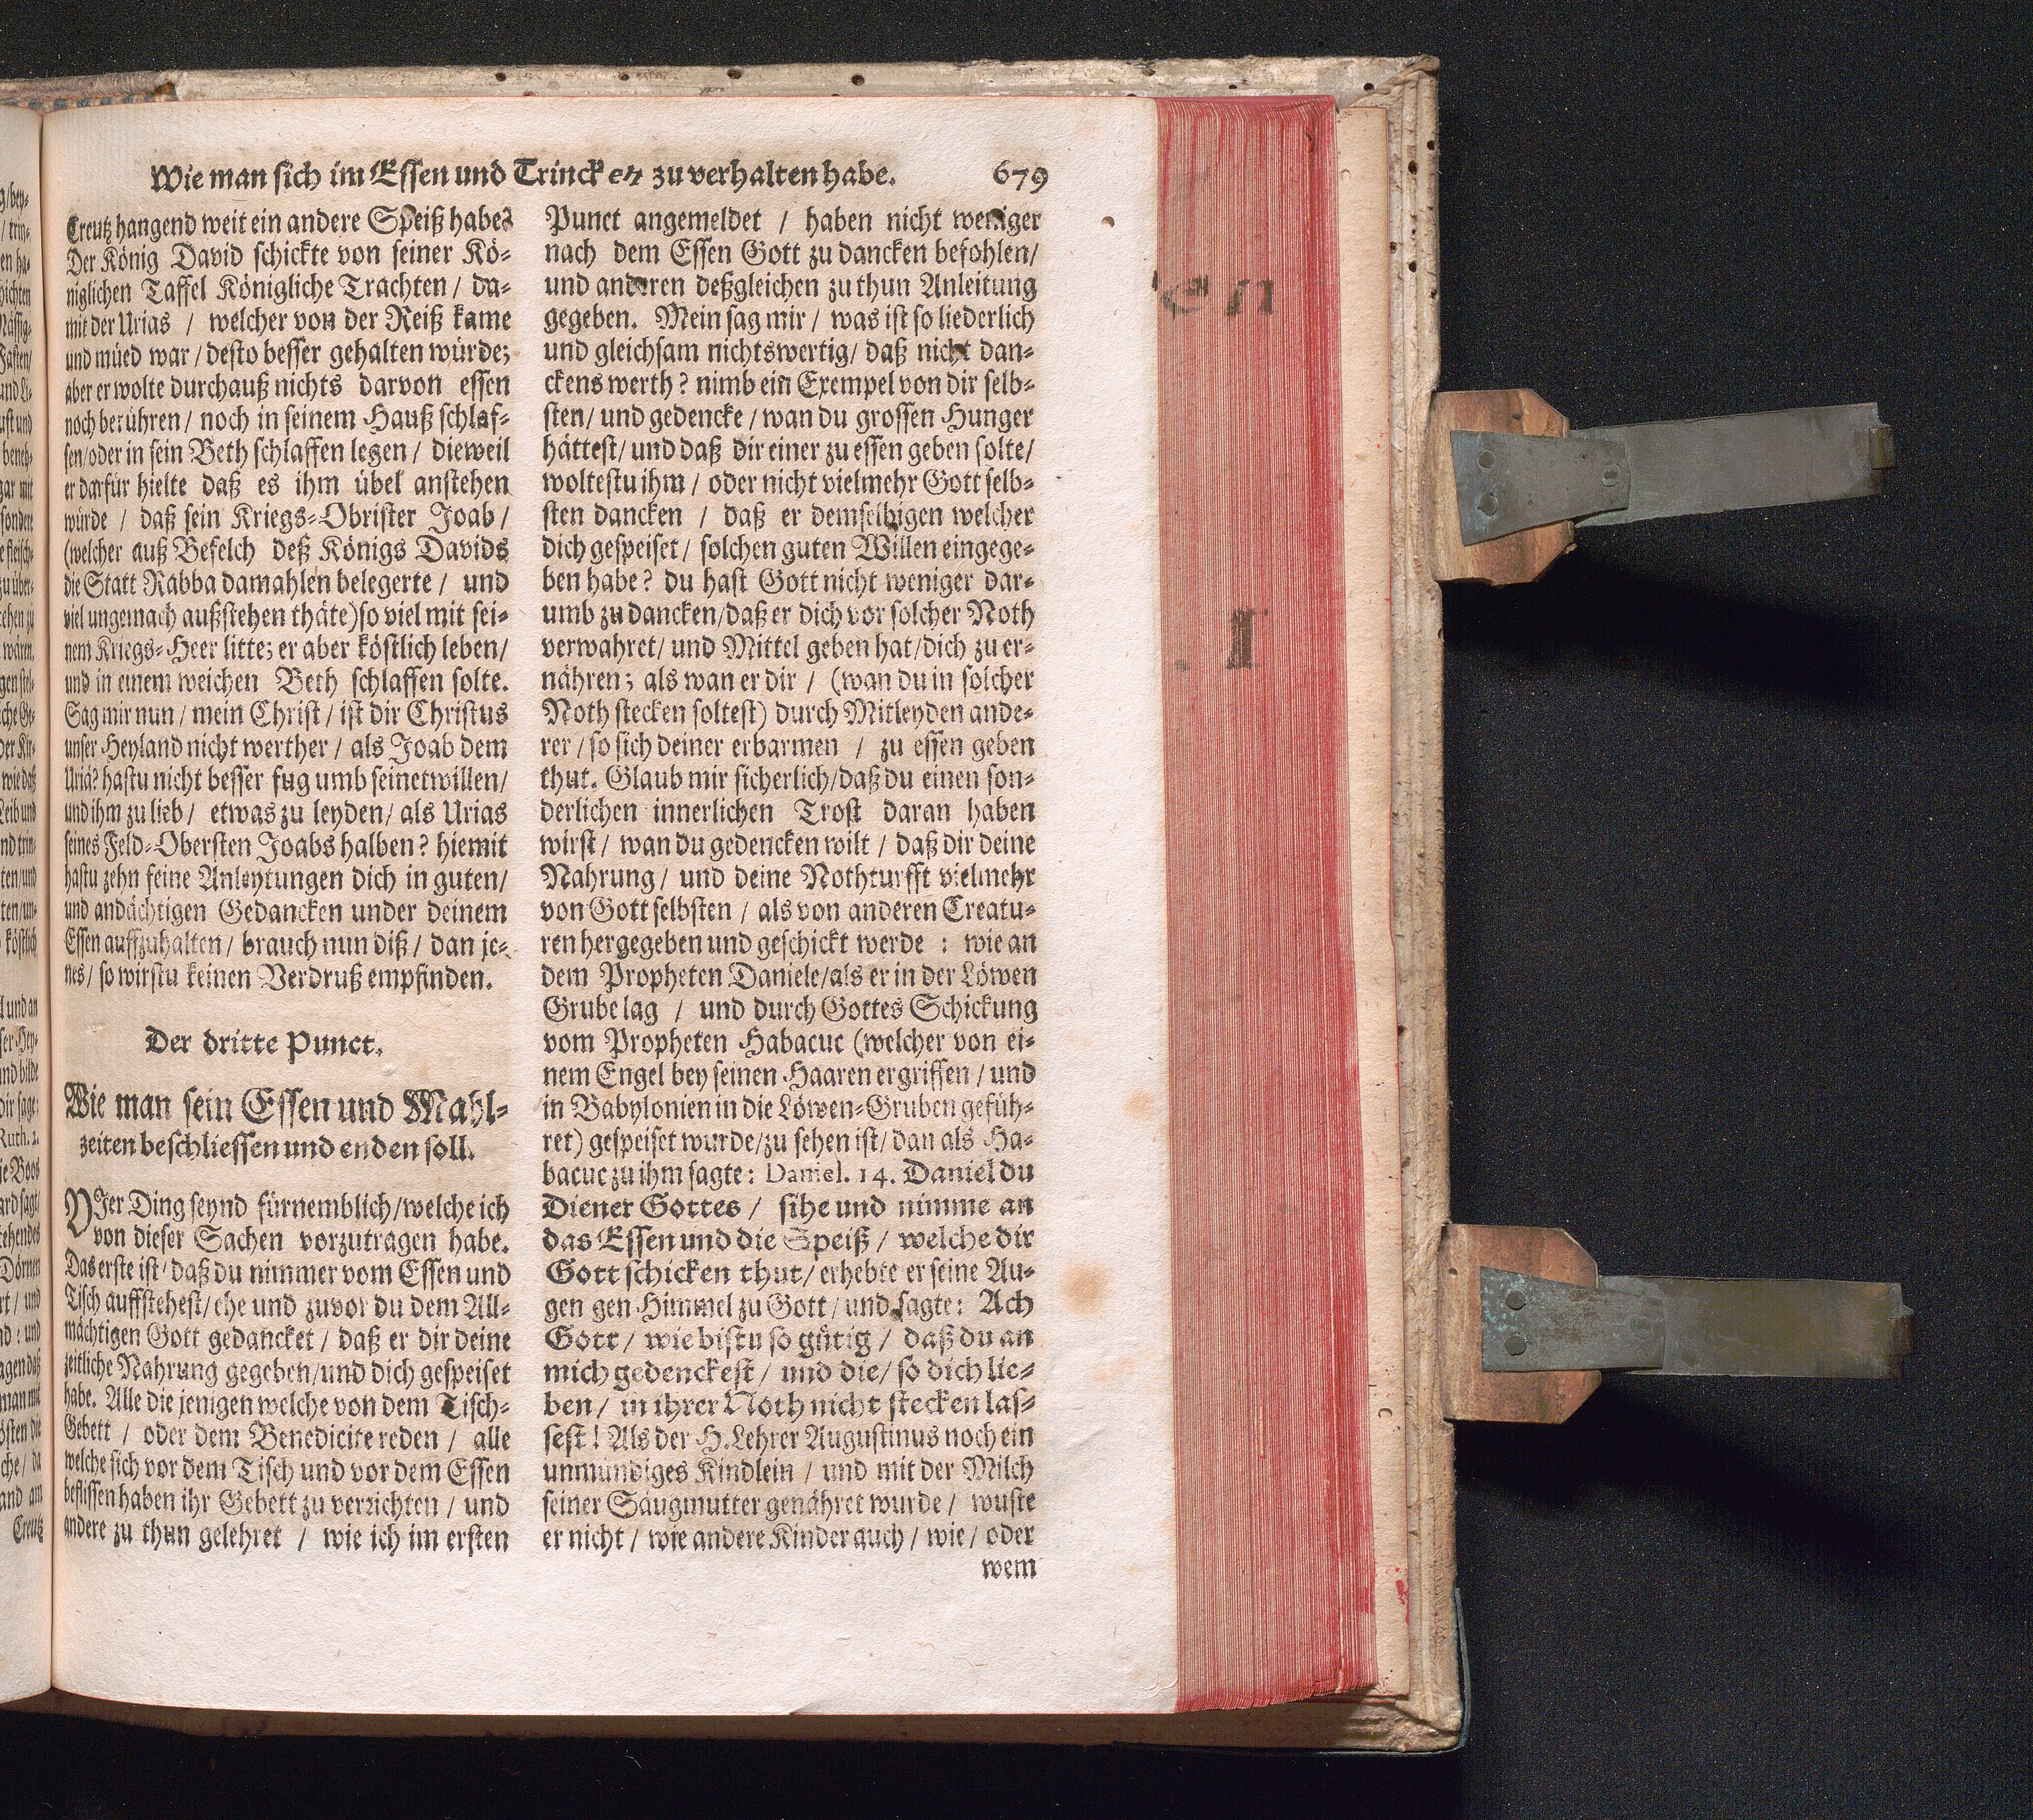 Wie man sich im Essen und Trincken zu verhalten habe. 679
Creutz hangend weit ein andere Speiß habe?
Der König David schickte von seiner Kö-
niglichen Taffel Königliche Trachten / da-
mit der Urias / welcher von der Reiß kame
und müed war / desto besser gehalten würde;
aber er wolte durchauß nichts darvon essen
noch berühren / noch in seinem Hauß schlaf-
fen / oder in sein Beth schlaffen legen / dieweil
er darfür hielte daß es ihm übel anstehen
würde / daß sein Kriegs-Obrister Joab /
(welcher auß Befelch deß Königs Davids
die Statt Rabba damahlen belegerte / und
viel ungemach außstehen thäte) so viel mit sei-
nem Kriegs-Heer litte; er aber köstlich leben /
und in einem weichen Beth schlaffen solte.
Sag mir nun / mein Christ / ist dir Christus
unser Heyland nicht werther / als Joab dem
Uriä? hastu nicht besser fug umb seinetwillen /
und ihm zu lieb / etwas zu leyden / als Urias
seines Feld-Obersten Joabs halben? hiemit
hastu zehn feine Anleytungen dich in guten /
und andächtigen Gedancken under deinem
Essen auffzuhalten / brauch nun diß / dan je-
nes / so wirstu keinen Verdruß empfinden.
Der dritte Punct.
Wie man sein Essen und Mahl-
zeiten beschliessen und enden soll.
VJer Ding seynd fürnemblich / welche ich
von dieser Sachen vorzutragen habe.
Das erste ist / daß du nimmer vom Essen und
Tisch auffstehest / ehe und zuvor du dem All-
mächtigen Gott gedancket / daß er dir deine
zeitliche Nahrung gegeben / und dich gespeiset
habe. Alle die jenigen welche von dem Tisch-
Gebett / oder dem Benedicite reden / alle
welche sich vor dem Tisch und vor dem Essen
beflissen haben ihr Gebett zu verrichten / und
andere zu thun gelehret / wie ich im ersten
Punct angemeldet / haben nicht weniger
nach dem Essen Gott zu dancken befohlen /
und anderen deßgleichen zu thun Anleitung
gegeben. Mein sag mir / was ist so liederlich
und gleichsam nichtswertig / daß nicht dan-
ckens werth? nimb ein Exempel von dir selb-
sten / und gedencke / wan du grossen Hunger
hättest / und daß dir einer zu essen geben solte /
woltestu ihm / oder nicht vielmehr Gott selb-
sten dancken / daß er demselbigen welcher
dich gespeiset / solchen guten Willen eingege-
ben habe? du hast Gott nicht weniger dar-
umb zu dancken / daß er dich vor solcher Noth
verwahret / und Mittel geben hat / dich zu er-
nähren; als wan er dir / (wan du in solcher
Noth stecken soltest) durch Mitleyden ande-
rer / so sich deiner erbarmen / zu essen geben
thut. Glaub mir sicherlich / daß du einen son-
derlichen innerlichen Trost daran haben
wirst / wan du gedencken wilt / daß dir deine
Nahrung / und deine Nothturfft vielmehr
von Gott selbsten / als von anderen Creatu-
ren hergegeben und geschickt werde : wie an
dem Propheten Daniele / als er in der Löwen
Grube lag / und durch Gottes Schickung
vom Propheten Habacuc (welcher von ei-
nem Engel bey seinen Haaren ergriffen / und
in Babylonien in die Löwen-Gruben gefüh-
ret) gespeiset wurde / zu sehen ist / dan als Ha-
bacuc zu ihm sagte: Daniel. 14. Daniel du
Diener Gottes / sihe und nimme an
das Essen und die Speiß / welche dir
Gott schicken thut / erhebte er seine Au-
gen gen Himmel zu Gott / und sagte: Ach
Gott / wie bistu so gütig / daß du an
mich gedenckest / und die / so dich lie-
ben / in ihrer Noth nicht stecken las-
sest! Als der H. Lehrer Augustinus noch ein
unmündiges Kindlein / und mit der Milch
seiner Säugmutter genähret wurde / wuste
er nicht / wie andere Kinder auch / wie / oder
wem